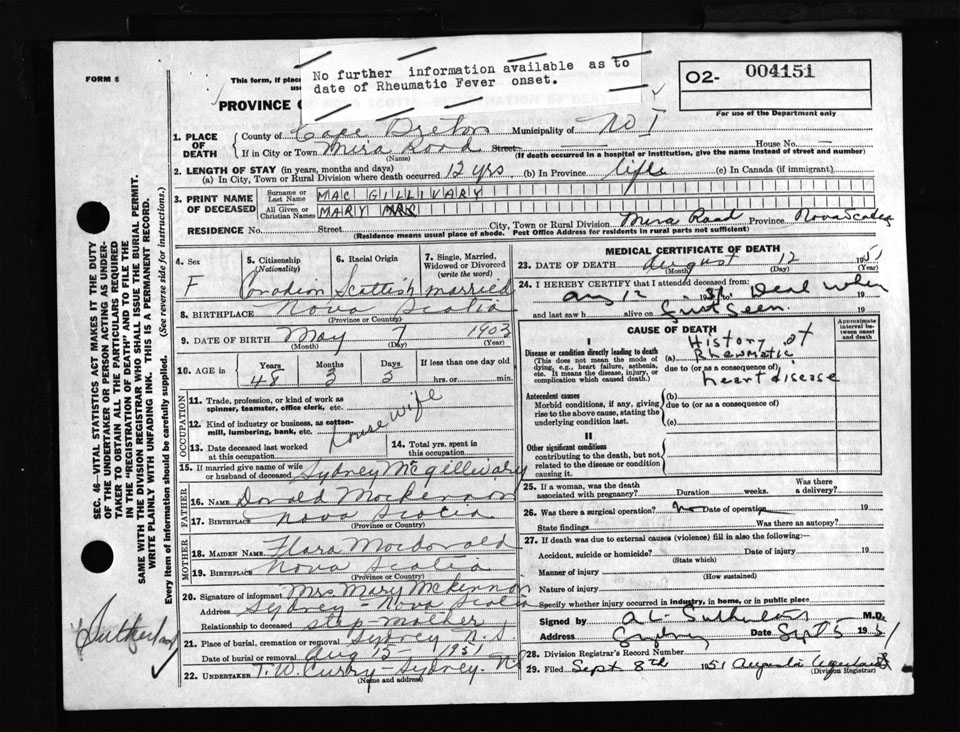 No further information available as to
date of Rheumatic Fever onset.
O2- 004151
For use of the Department only
FORM 6
This form, if place
PROVINCE O
1. PLACE OF DEATH
County of Cape Breton Municipality of No 1
If in City or Town Mira Road Street House No. —
(Name) (If death occurred in a hospital or institution, give the name instead of street and number)
2. LENGTH OF STAY (in years, months and days)
(a) In City, Town or Rural Division where death occurred 12 yrs (b) In Province life (c) In Canada (if immigrant)
3. PRINT NAME OF DECEASED
Surname or Last Name MAC GILLIVARY
All Given or Christian Names MARY MRS
RESIDENCE No. Street City, Town or Rural Division Mira Road Province Nova Scotia
(Residence means usual place of abode. Post Office Address for residents in rural parts not sufficient)
4. Sex F
5. Citizenship (Nationality) Canadian
6. Racial Origin Scottish
7. Single, Married, Widowed or Divorced (write the word) married
8. BIRTHPLACE Nova Scotia
(Province or Country)
9. DATE OF BIRTH May 7 1903
(Month) (Day) (Year)
10. AGE in Years 48 Months 3 Days 5 If less than one day old hrs. or min.
OCCUPATION
11. Trade, profession, or kind of work as spinner, teamster, office clerk, etc.
12. Kind of industry or business, as cotton-mill, lumbering, bank, etc.
House wife
13. Date deceased last worked at this occupation
14. Total yrs. spent in this occupation
15. If married give name of wife or husband of deceased Sydney McGillivary
FATHER
16. NAME Donald Mackennon
17. BIRTHPLACE Nova Scotia
(Province or Country)
MOTHER
18. MAIDEN NAME Flora Macdonald
19. BIRTHPLACE Nova Scotia
(Province or Country)
20. Signature of informant Mrs Mary McKennon
Address Sydney - Nova Scotia
Relationship to deceased step-mother
21. Place of burial, cremation or removal Sydney N.S
Date of burial or removal Aug 15 1951
22. UNDERTAKER T. W. Curry - Sydney. N.S
(Name and address)
MEDICAL CERTIFICATE OF DEATH
23. DATE OF DEATH August 12 1951
(Month) (Day) (Year)
24. I HEREBY CERTIFY that I attended deceased from:
Aug 12 1951 to Dead when 19
and last saw h alive on first seen. 19
CAUSE OF DEATH
Approximate interval between onset and death
I
Disease or condition directly leading to death
(This does not mean the mode of dying, e.g., heart failure, asthenia, etc. It means the disease, injury, or complication which caused death.)
(a) History of Rheumatic
due to (or as a consequence of)
heart disease
Antecedent causes
Morbid conditions, if any, giving rise to the above cause, stating the underlying condition last.
(b)
due to (or as a consequence of)
(c)
II
Other significant conditions
contributing to the death, but not related to the disease or condition causing it.
25. If a woman, was the death associated with pregnancy? Duration weeks. Was there a delivery?
26. Was there a surgical operation? no Date of operation 19
State findings Was there an autopsy?
27. If death was due to external causes (violence) fill in also the following:—
Accident, suicide or homicide? Date of injury 19
(State which)
Manner of injury
(How sustained)
Nature of injury
Specify whether injury occurred in industry, in home, or in public place
Signed by A L Sutherland M.D.
Address Sydney Date Sept 5 1951
28. Division Registrar's Record Number
29. Filed Sept 8th 1951
(Division Registrar)
SEC. 46—VITAL STATISTICS ACT MAKES IT THE DUTY
OF THE UNDERTAKER OR PERSON ACTING AS UNDERTAKER TO OBTAIN ALL THE PARTICULARS REQUIRED
IN THE "REGISTRATION OF DEATH" AND TO FILE THE
SAME WITH THE DIVISION REGISTRAR WHO SHALL ISSUE THE BURIAL PERMIT.
WRITE PLAINLY WITH UNFADING INK. THIS IS A PERMANENT RECORD.
Every item of information should be carefully supplied. (See reverse side for instructions.)
Sutherland